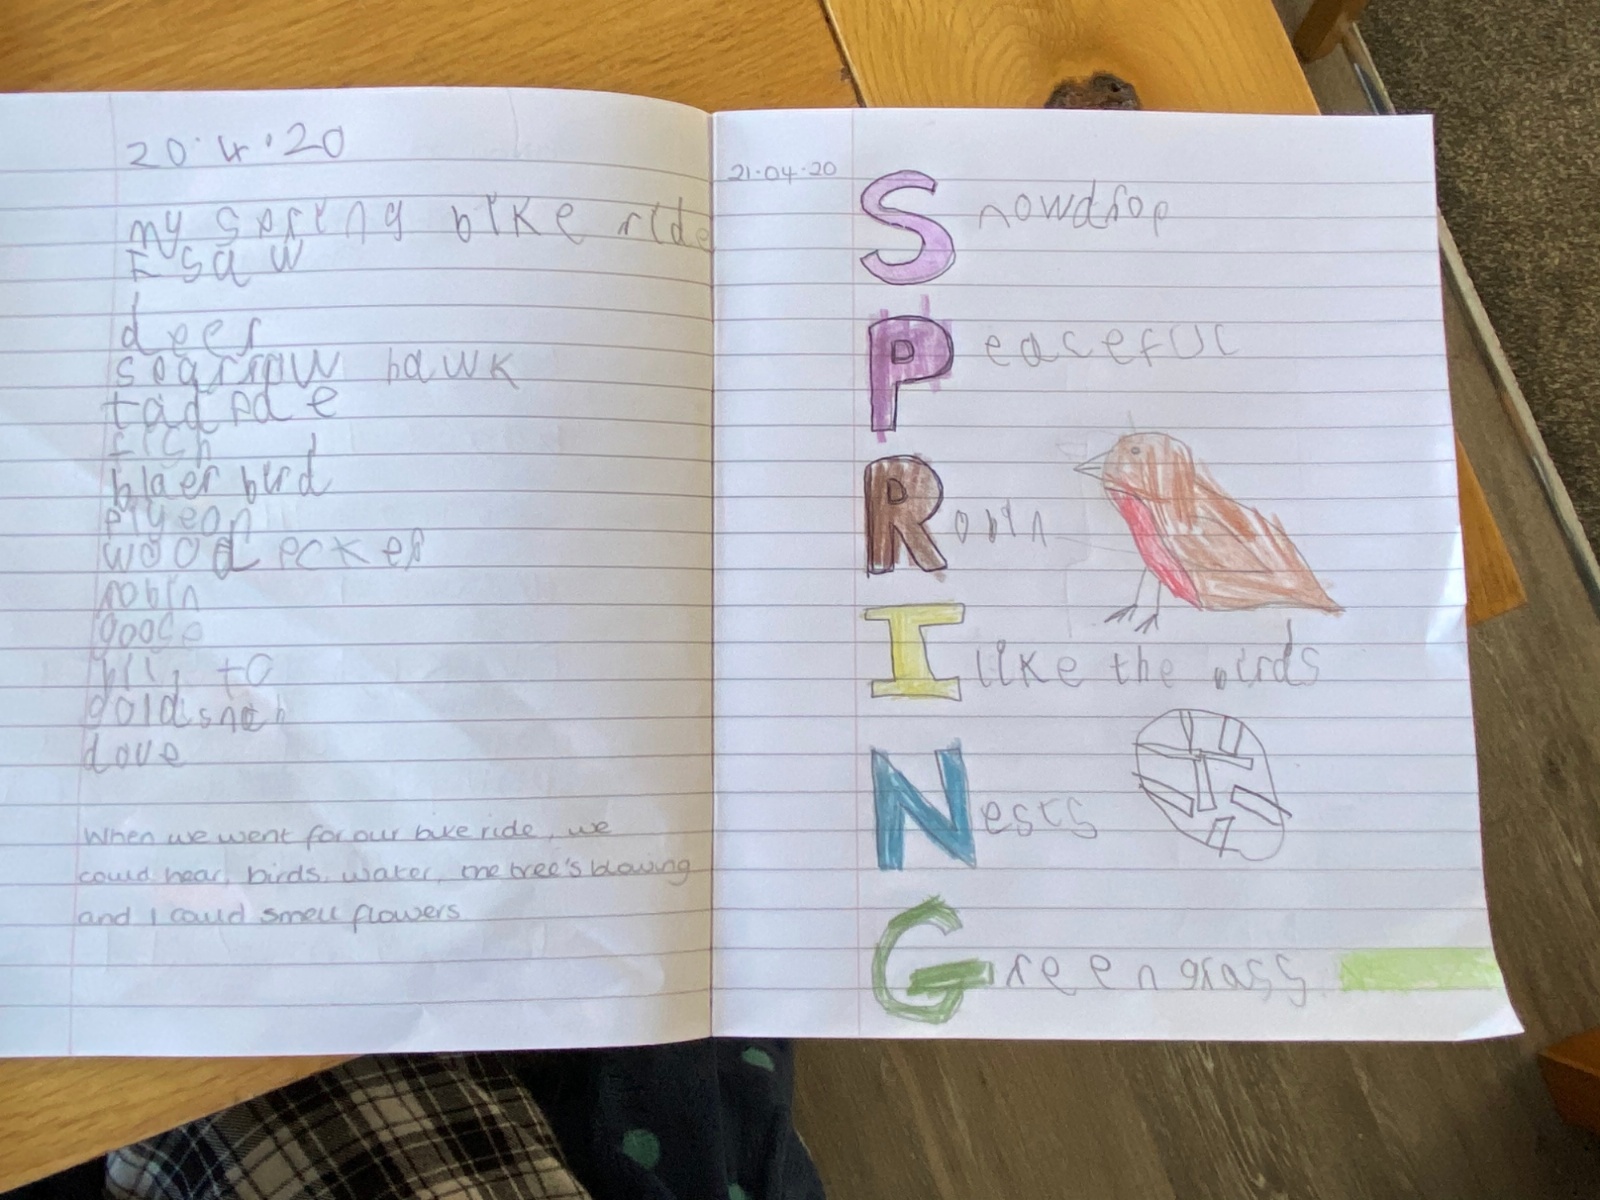 20.4.20
my spring bike ride
I saw
deer
sparrow hawk
fish
bird
wood pecker
robin
goose
dove
When we went for our bike ride, we
could hear, birds, water, the tree's blowing
and I could smell flowers
21.04.20
Snowdrop
Peaceful
Robin
I like the birds
Nests
Green grass